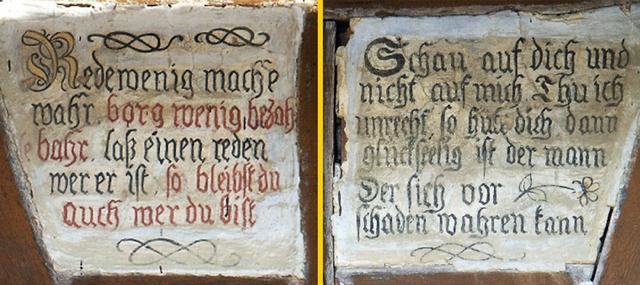 Redewenig mache
wahr borg wenig, bezah
e bahr. laß einen reden
wer er ist, so bleibst du
auch wer du bist
Schau auf dich und
nicht auf mich Thu ich
unrecht, so hüte dich dann
glückseelig ist der mann
Der sich vor
schaden wahren kann